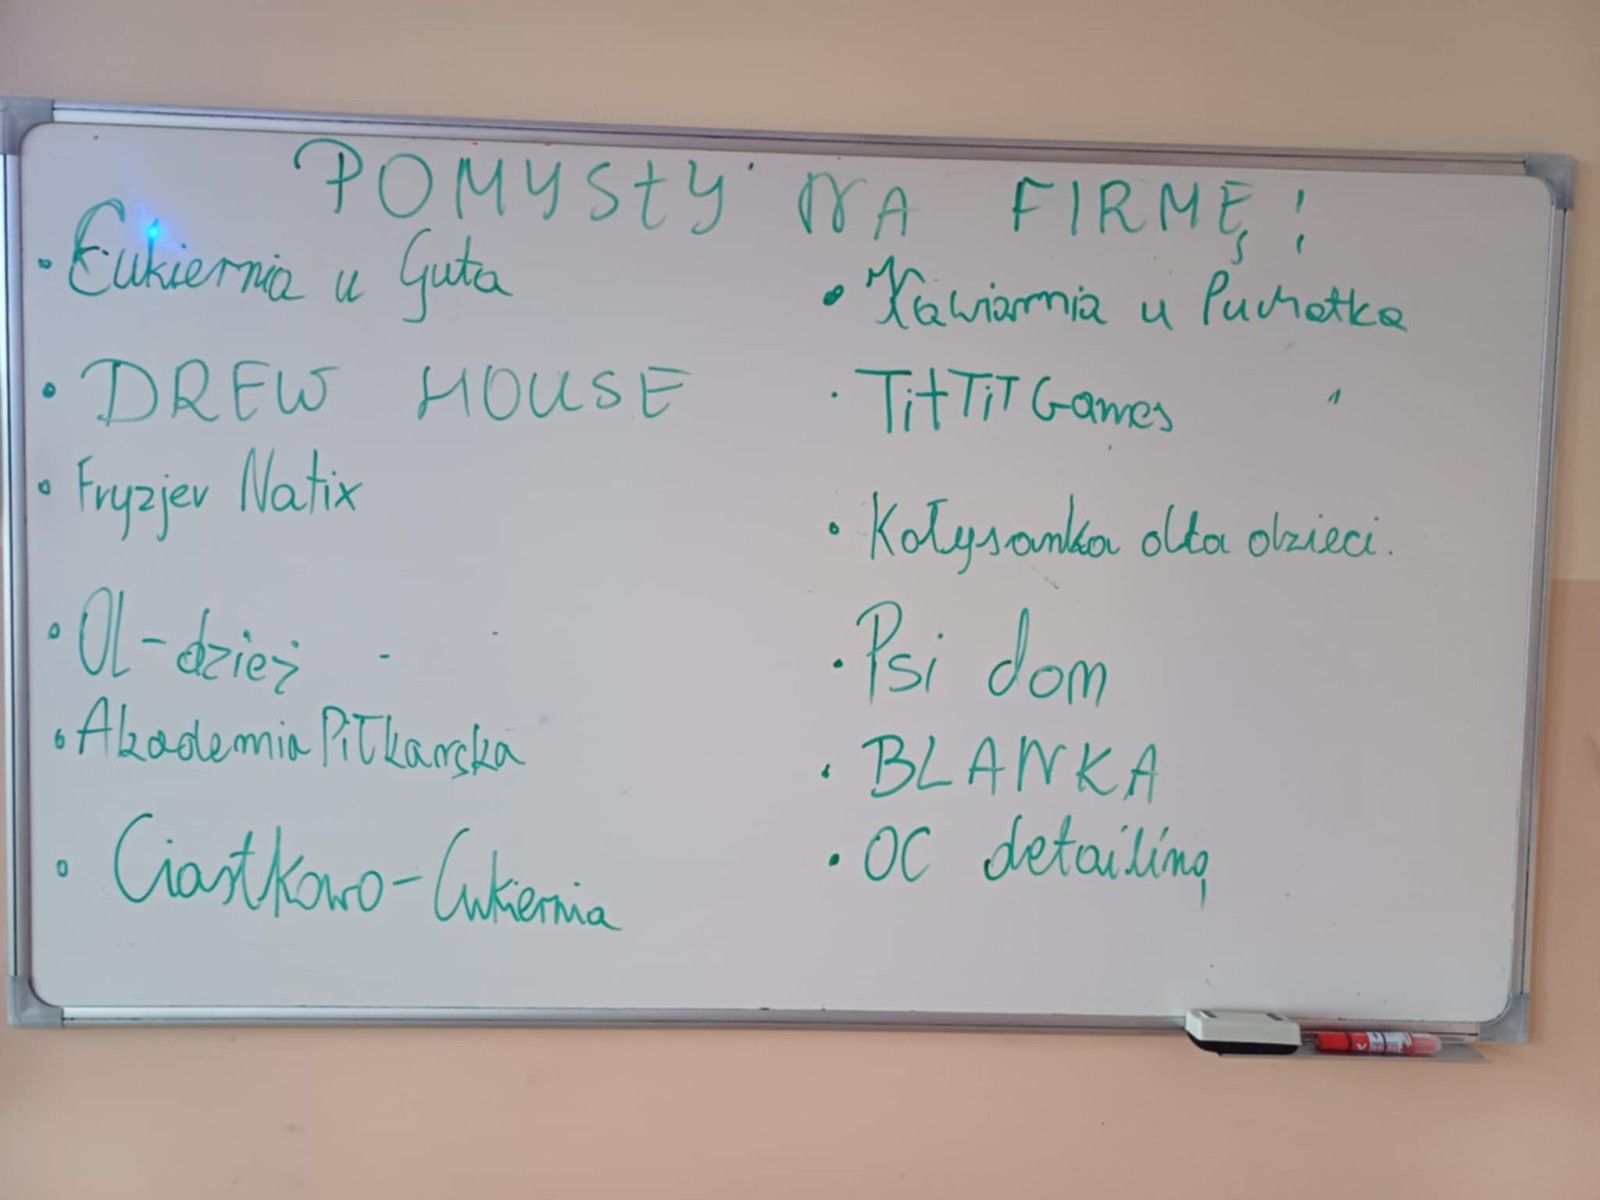 POMYSŁY NA FIRMĘ!
• Cukiernia u Guta
• DREW HOUSE
• Fryzjer Natix
• Ol-dzież
• Akademia Piłkarska
• Ciastkowo-Cukiernia
• Kawiarnia u Puchatka
• TitTiT Games
• Kołysanka dla dzieci.
• Psi dom
• BLANKA
• OC detailing